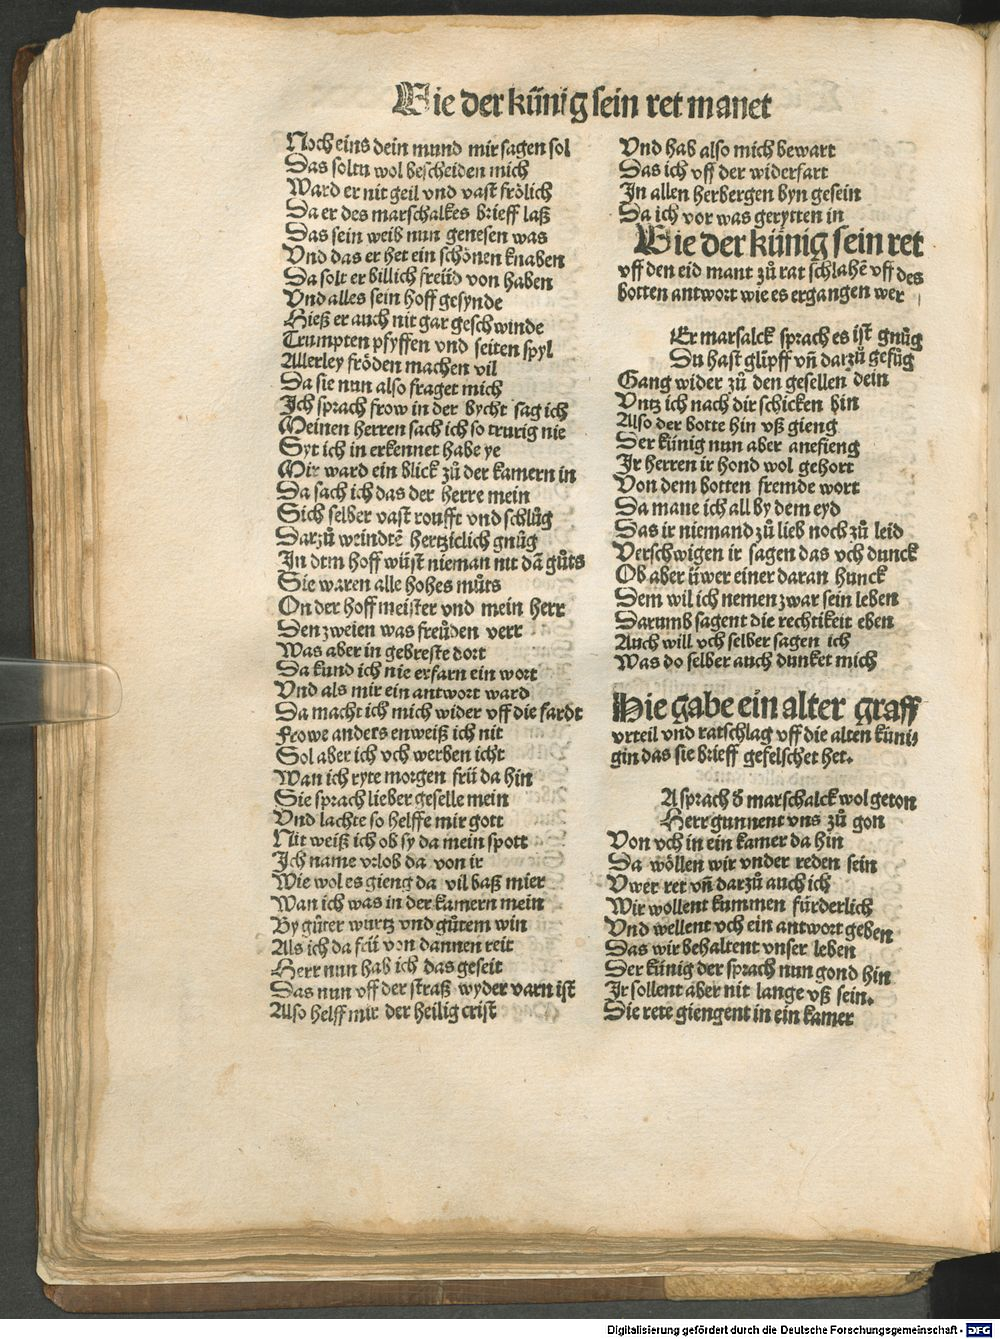 Wie der künig sein ret manet
Noch eins dein mund mir sagen sol
Das soltu wol bescheiden mich
Ward er nit geil vnd vast frölich
Da er des marschalkes brieff laß
Das sein weib nun genesen was
Vnd das er het ein schönen knaben
Da solt er billich freüd von haben
Vnd alles sein hoff gesynde
Hieß er auch nit gar geschwinde
Trumpten pfyffen vnd seiten spyl
Allerley fröden machen vil
Da sie nun also fraget mich
Ich sprach frow in der bycht sag ich
Meinen herren sach ich so trurig nie
Syt ich in erkennet habe ye
Mir ward ein blick zů der kamern in
Da sach ich das der herre mein
Sich selber vast roufft vnd schlůg
Darzů weindtē hertziclich gnůg
In dem hoff wüst nieman nit dā gůts
Sie waren alle hohes můts
On der hoff meister vnd mein herr
Den zweien was freüden verr
Was aber in gebreste dort
Da kund ich nie erfarn ein wort
Vnd als mir ein antwort ward
Da macht ich mich wider vff die fardt
Frowe anders en weiß ich nit
Sol aber ich vch werben icht
Wan ich ryte morgen frü da hin
Sie sprach lieber geselle mein
Vnd lachte so helffe mir gott
Nit weiß ich ob sy da mein spott
Ich name vrlob da von ir
Wie wol es gieng da vil baß mier
Wan ich was in der kamern mein
By gůter wurtz vnd gůtem win
Als ich da frü von dannen reit
Herr nun hab ich das geseit
Das nun vff der straß wyder varn ist
Also helff mir der heilig crist
Vnd hab also mich bewart
Das ich vff der widerfart
In allen herbergen byn gesein
Da ich vor was gerytten in
Wie der künig sein ret
vff den eid mant zů rat schlahē vff des
botten antwort wie es ergangen wer
Er marsalck sprach es ist gnůg
Du hast glipff vn̄ darzů gefůg
Gang wider zů den gesellen dein
Vntz ich nach dir schicken hin
Also der botte hin vß gieng
Der künig nun aber anefieng
Ir herren ir hond wol gehort
Von dem botten fremde wort
Da mane ich all by dem eyd
Das ir niemand zů lieb noch zů leid
Verschwigen ir sagen das vch dunck
Ob aber üwer einer daran hunck
Dem wil ich nemen zwar sein leben
Darumb sagent die rechtikeit eben
Auch will vch selber sagen ich
Was do selber auch dunket mich
Hie gabe ein alter graff
vrteil vnd ratschlag vff die alten küni-
gin das sie brieff gefelschet het.
A sprach d̄ marschalck wol geton
Herr gunnent vns zů gon
Von vch in ein kamer da hin
Da wöllen wir vnder reden sein
Vwer ret vn̄ darzů auch ich
Wir wollent kummen fürderlich
Vnd wellent vch ein antwort geben
Das wir behaltent vnser leben
Der künig der sprach nun gond hin
Ir sollent aber nit lange vß sein.
Die rete giengent in ein kamer
Digitalisierung gefördert durch die Deutsche Forschungsgemeinschaft - DFG